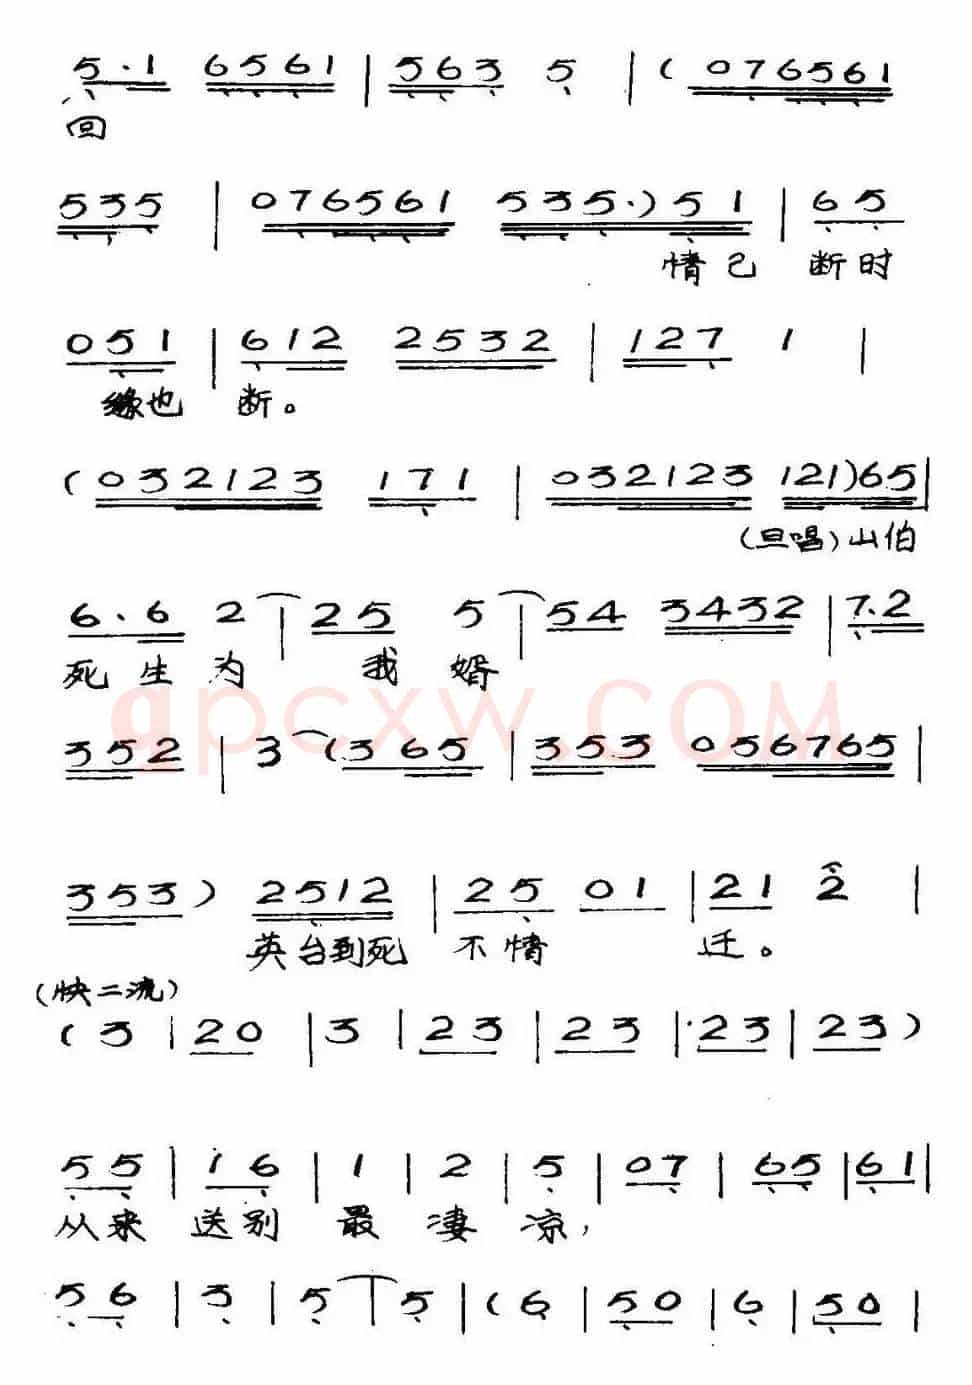 5·1 6561 | 563 5 | (076561
回
535 | 076561 535·) 51 | 65
情已 断时
051 | 612 2532 | 127 1 |
缘也 断。
(032123 171 | 032123 121)65|
(旦唱)山伯
6·6 2 | 25 5 | 54 3432 | 7·2
死生为 我婿
352 | 3 (365 | 353 056765 |
353) 2512 | 25 01 | 21 2 |
英台到死 不情 迁。
(快二流)
(3 | 20 | 3 | 23 | 23 | 23 | 23)
55 | 16 | 1 | 2 | 5 | 07 | 65 | 61 |
从来 送别 最 凄 凉,
56 | 3 | 5 | 5 | (6 | 50 | 6 | 50 |
qpcxw.COM